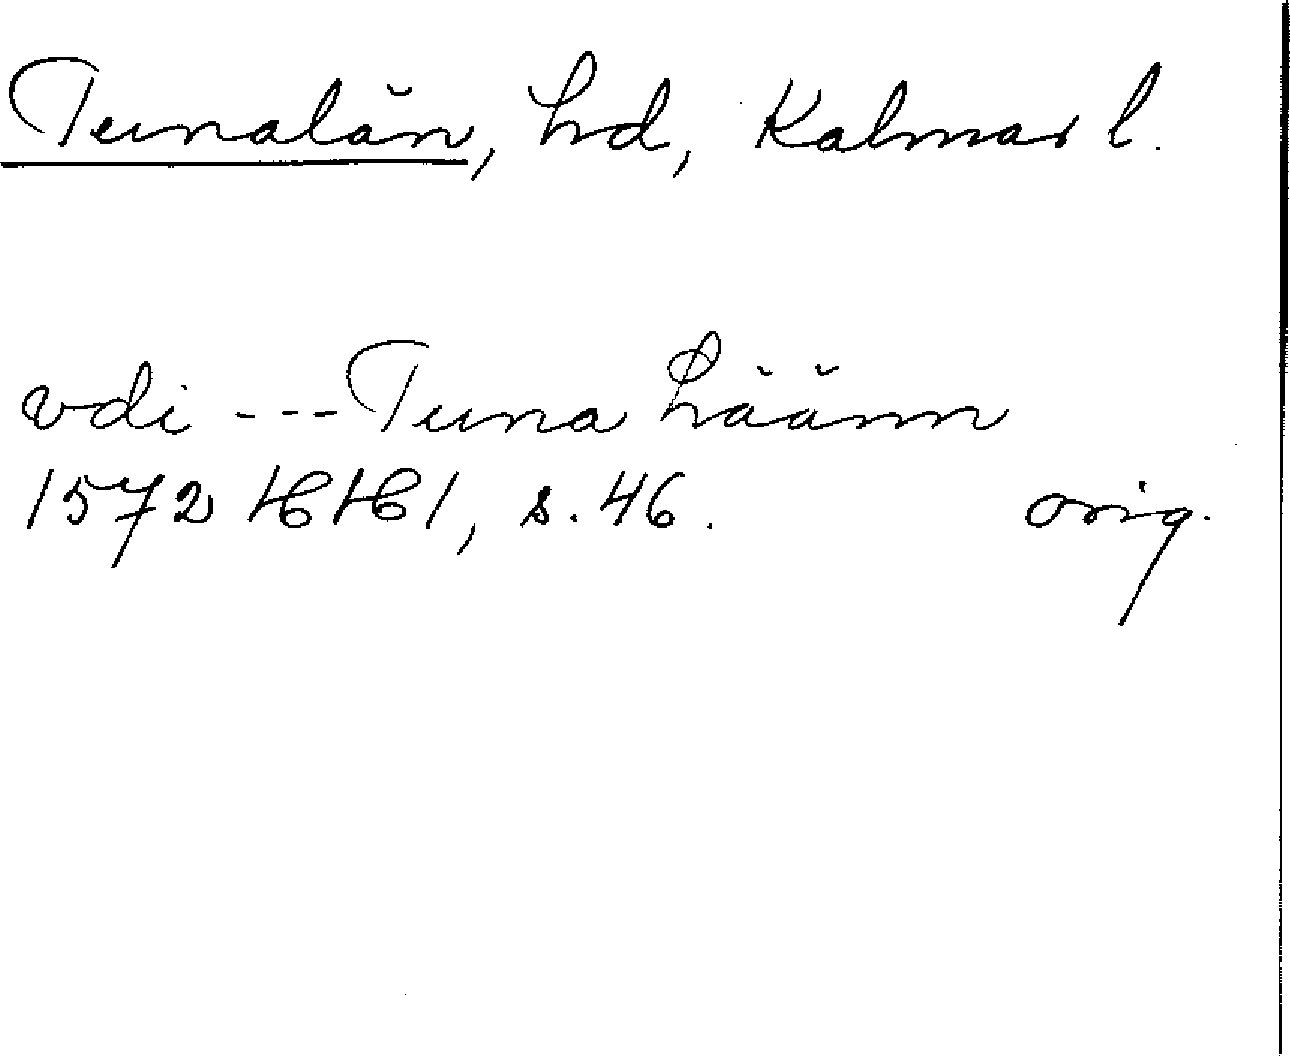 Tunalän, hd, Kalmar l.
vdi --- Tuna Läänn
1572 HH 1, s. 46. orig.